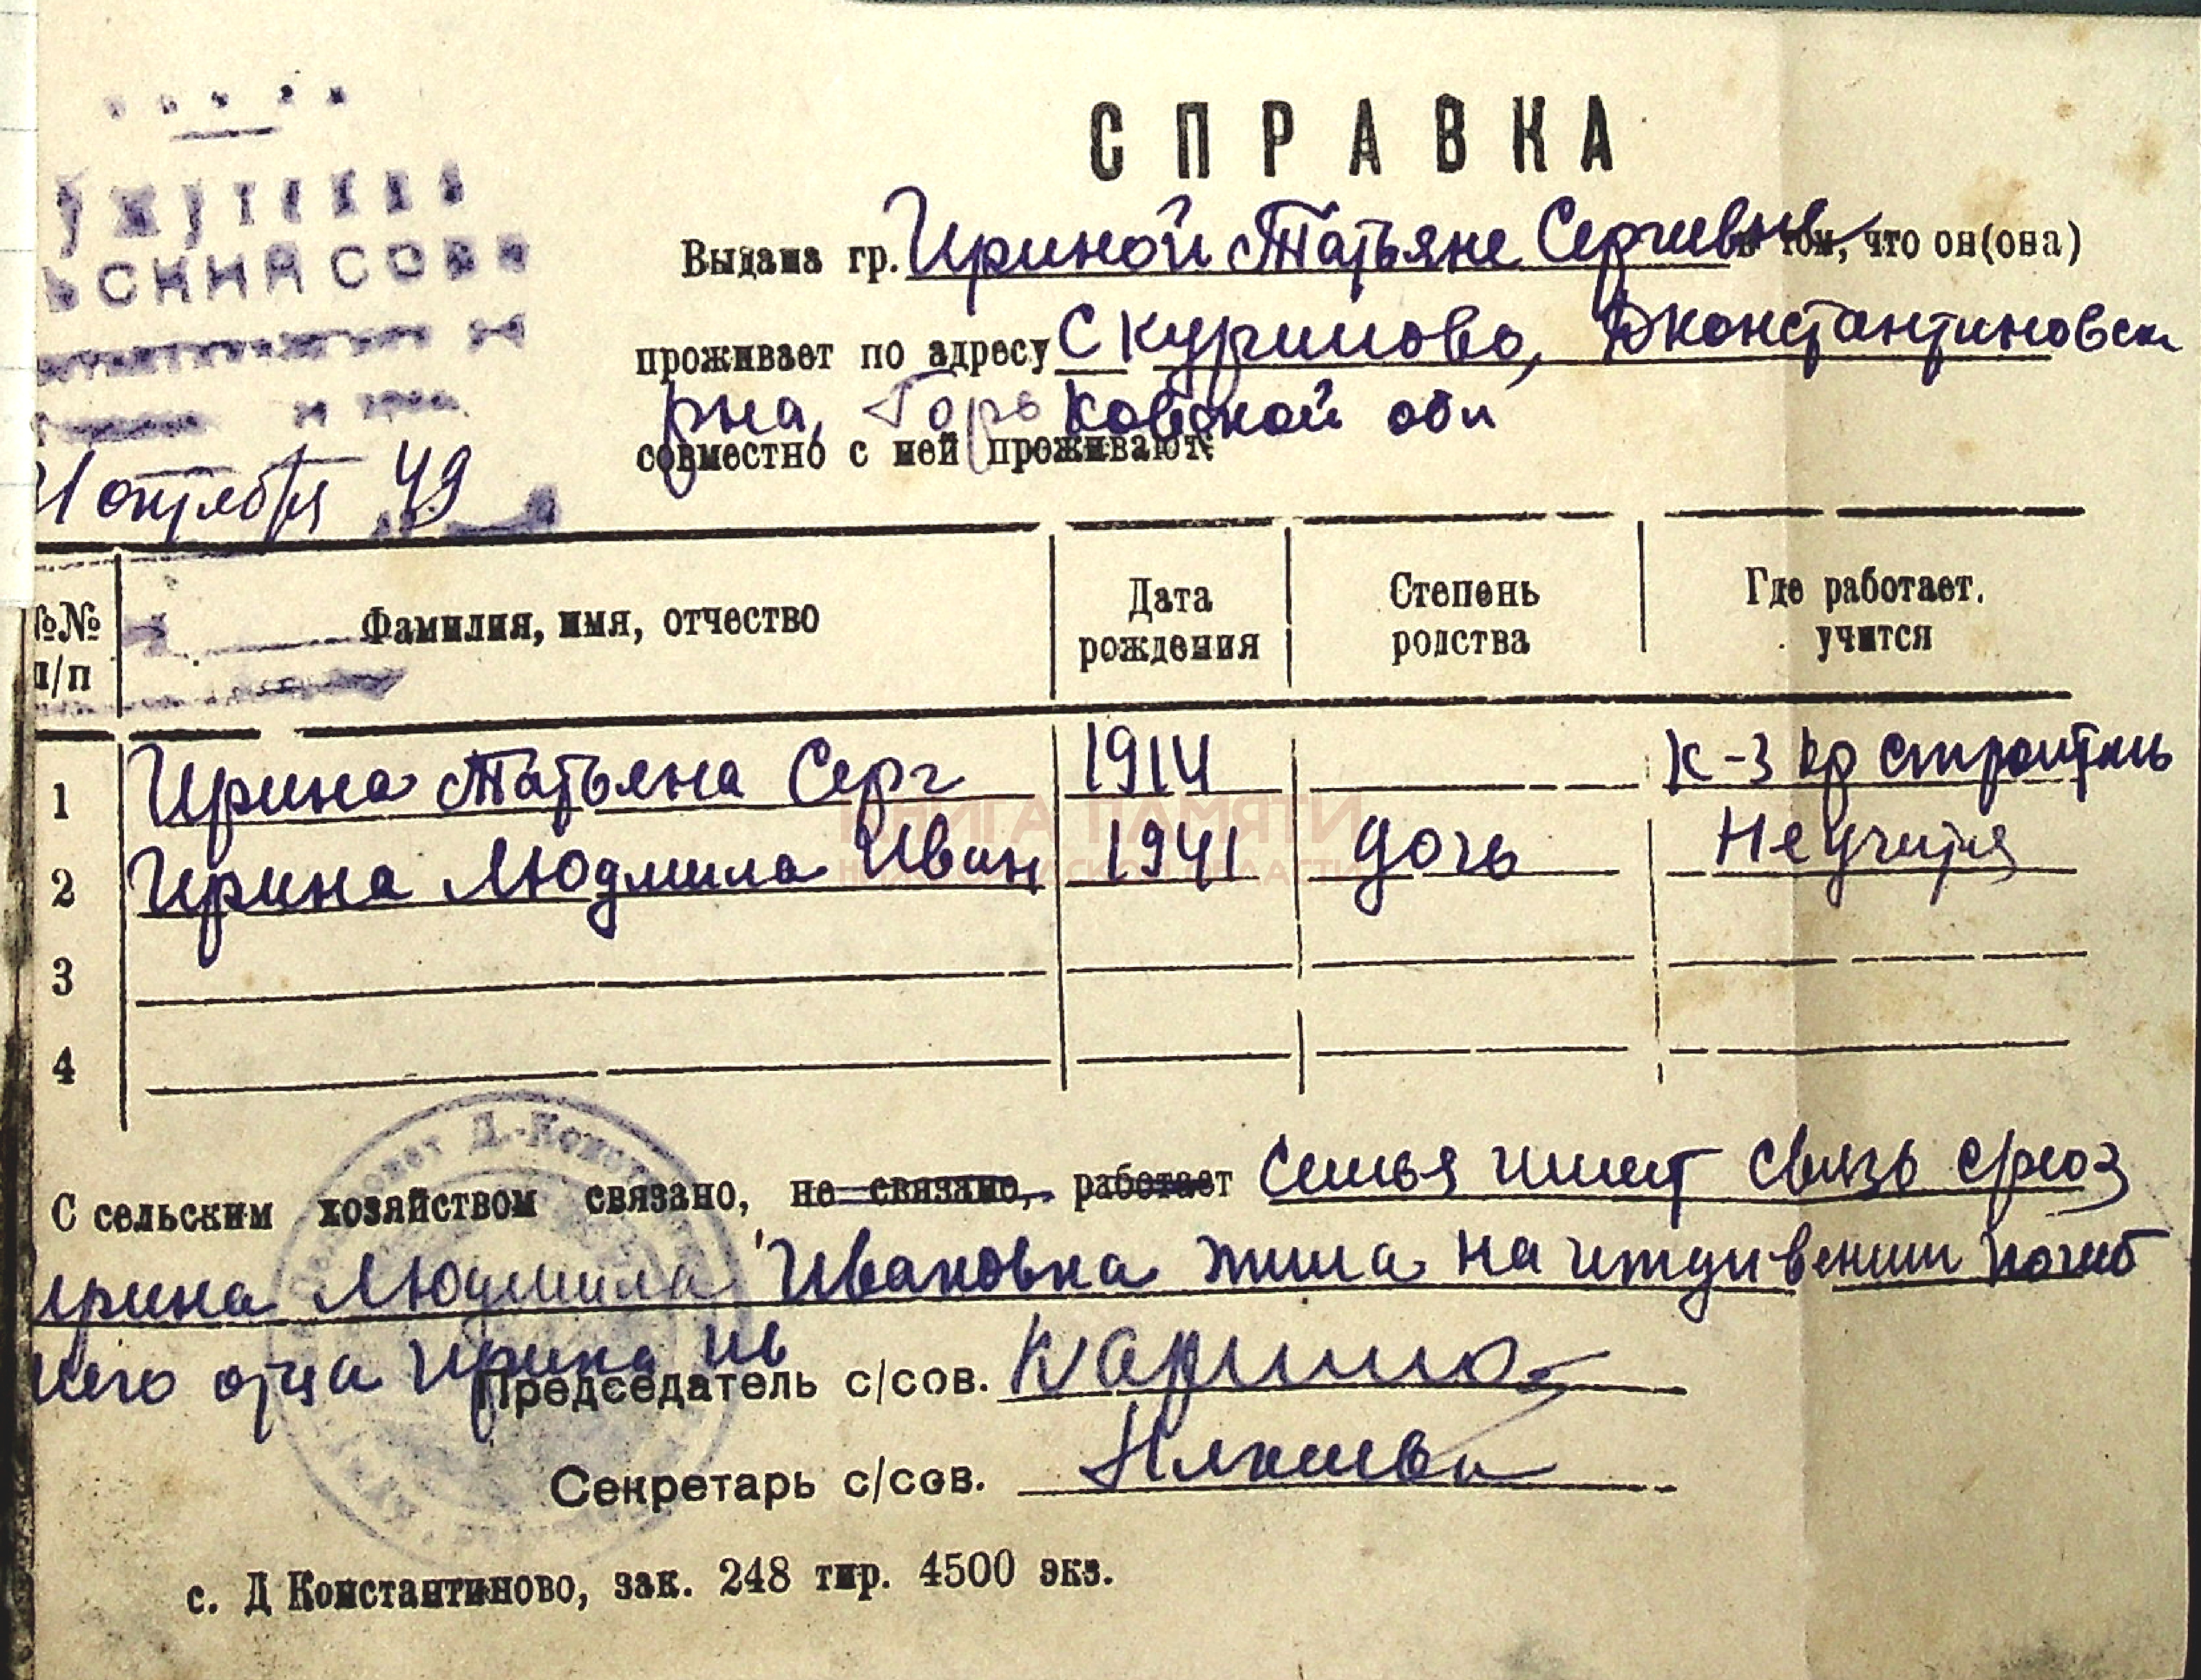 СПРАВКА
Выдана гр. Ириной Татьяне Сергиевне в том, что он(она)
проживает по адресу Скуримово, Дконстантиновск
рна, Горьковской обл
совместно с ней проживают:
октября 49
№№ п/п Фамилия, имя, отчество Дата рождения Степень родства Где работает, учится
1 Ирина Татьяна Серг 1914 К-з кр строитель
2 Ирина Людмила Иван 1941 дочь Не учится
3
4
КНИГА ПАМЯТИ
НИЖЕГОРОДСКОЙ ОБЛАСТИ
С сельским хозяйством связано, не связано, работает Семья имеет связь
Ирина Людмила Ивановна жила на иждивении погиб
шего отца Ирина Ив
Председатель с/сов.
Секретарь с/сов.
с. Д Константиново, зак. 248 тир. 4500 экз.